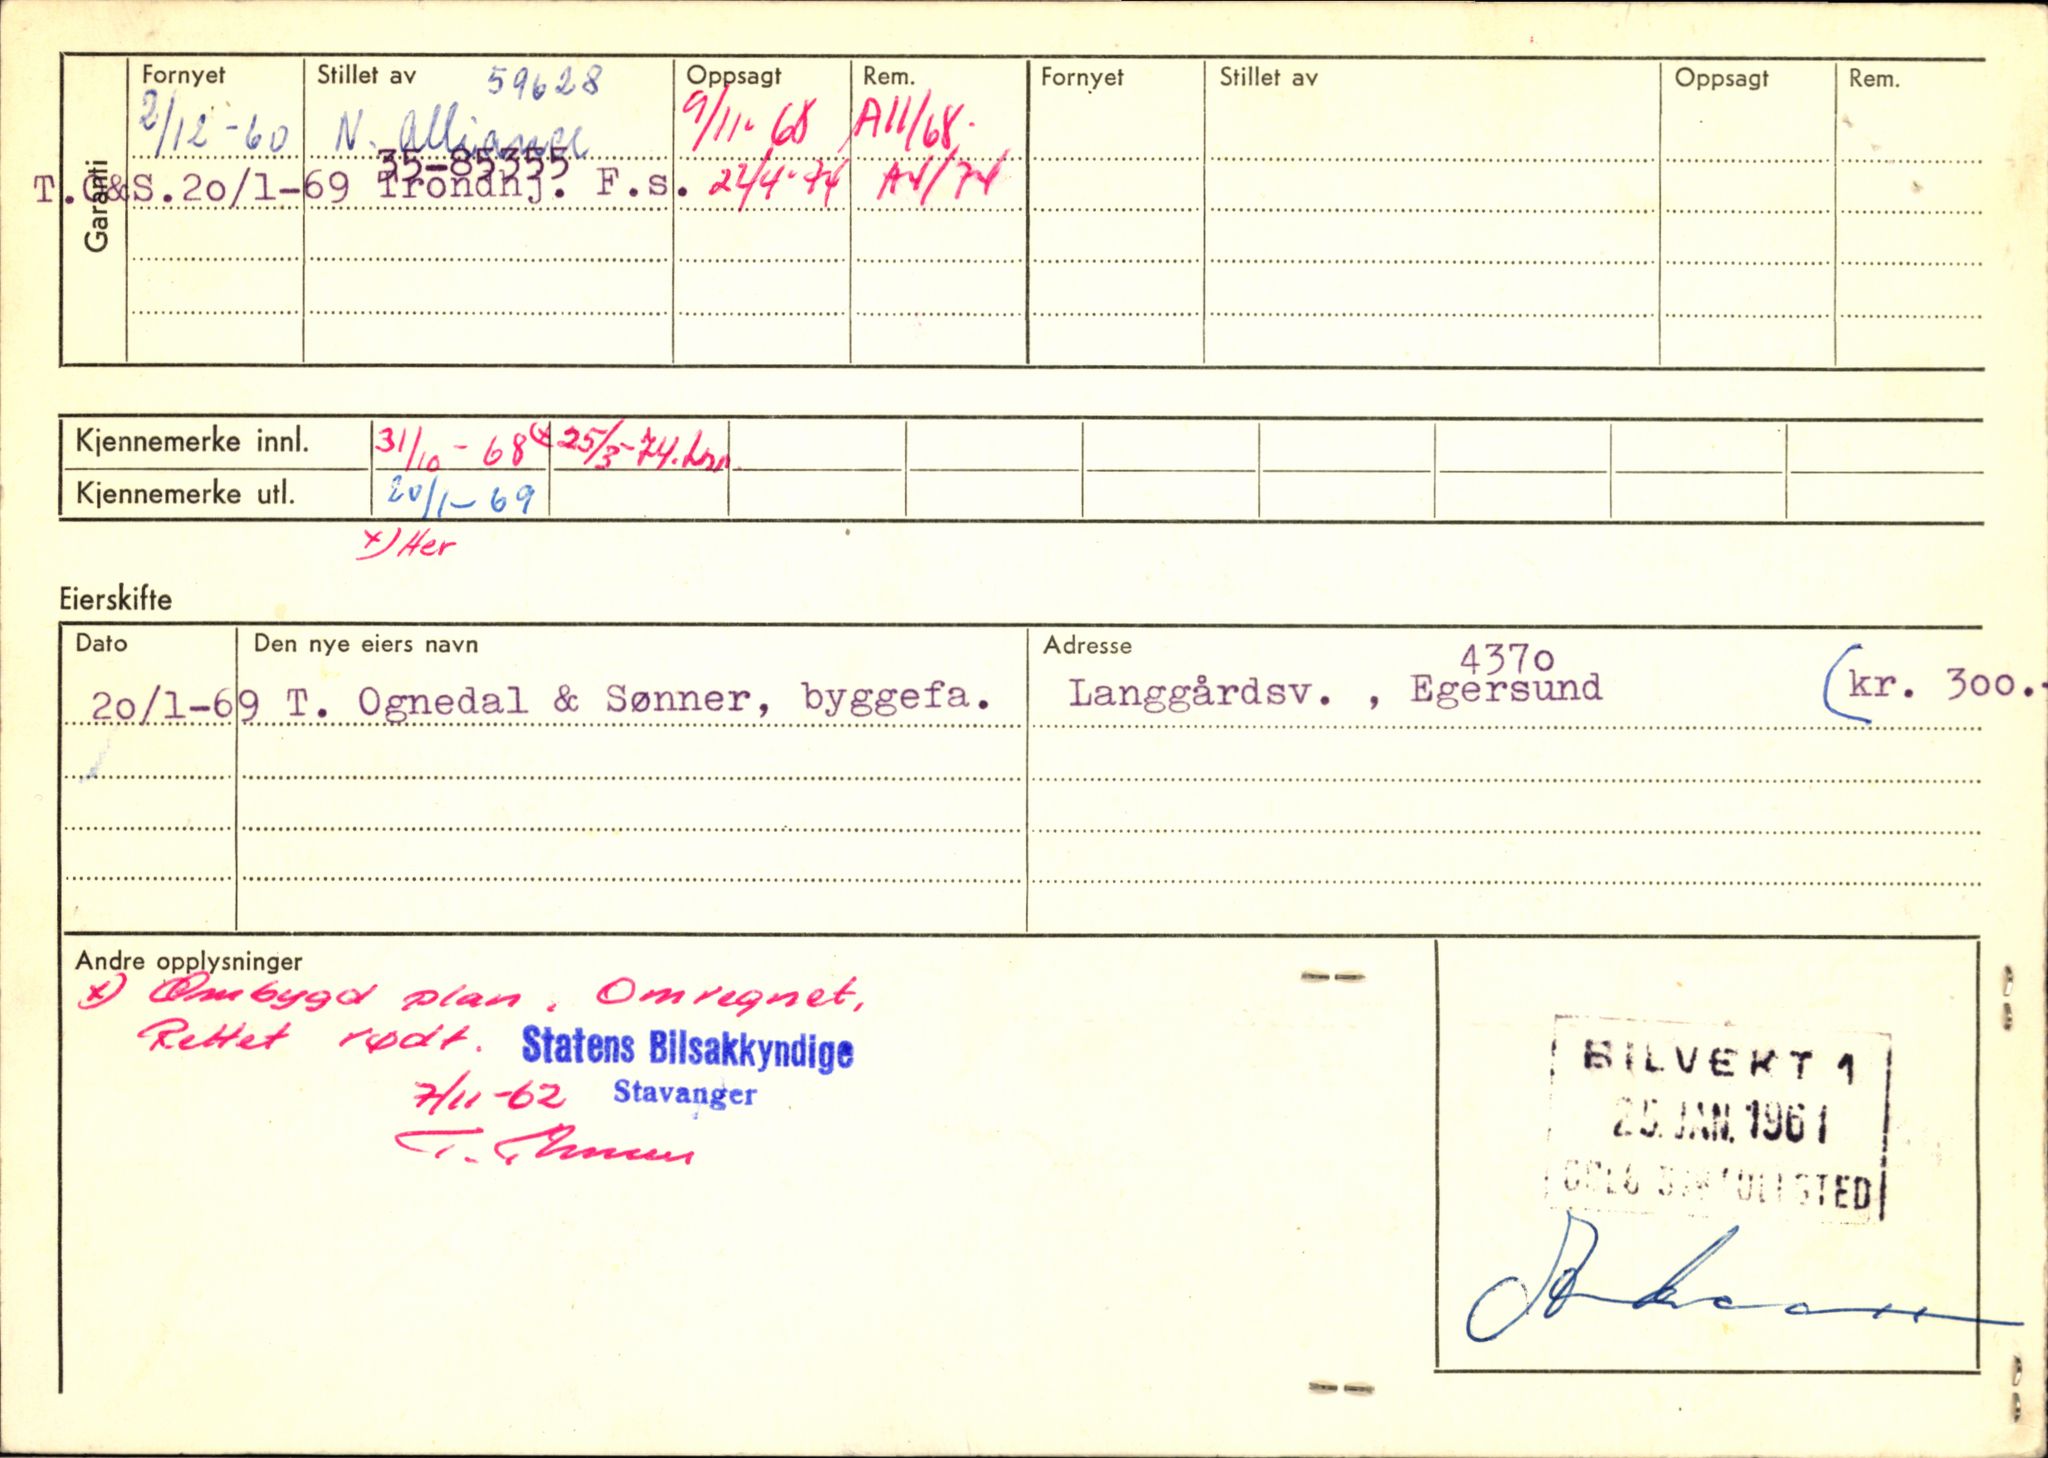 Garanti
Fornyet Stillet av Oppsagt Rem. Fornyet Stillet av Oppsagt Rem.
59628
2/12-60 N. Alliance 9/11-68 A11/68.
35-85355
T.O&S.20/1-69 Trondhj. F.s. 22/4-74 A4/74
Kjennemerke innl. 31/10-68 x) 25/3-74.
Kjennemerke utl. 20/1-69
x) Her
Eierskifte
Dato Den nye eiers navn Adresse
4370
20/1-69 T. Ognedal & Sønner, byggefa. Langgårdsv. , Egersund (kr. 300.-
Andre opplysninger
x) Ombygd plan. Omregnet,
Rettet rødt.
Statens Bilsakkyndige
7/11-62 Stavanger
BILVEKT 1
25. JAN. 1961
OSLO